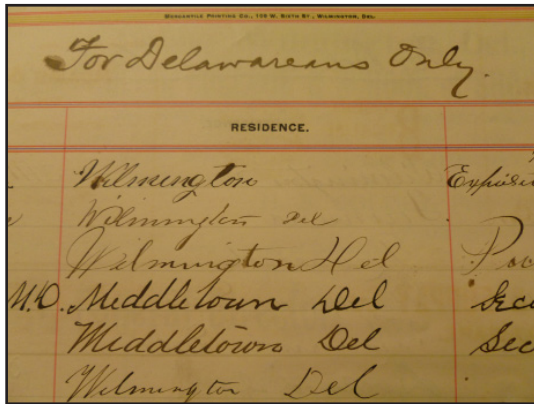 MERCANTILE PRINTING CO., 109 W. SIXTH ST., WILMINGTON, DEL.
For Delawareans Only.
RESIDENCE.
Wilmington
Wilmington Del
Wilmington Del
M.D. Middletown Del
Middletown Del
Wilmington Del